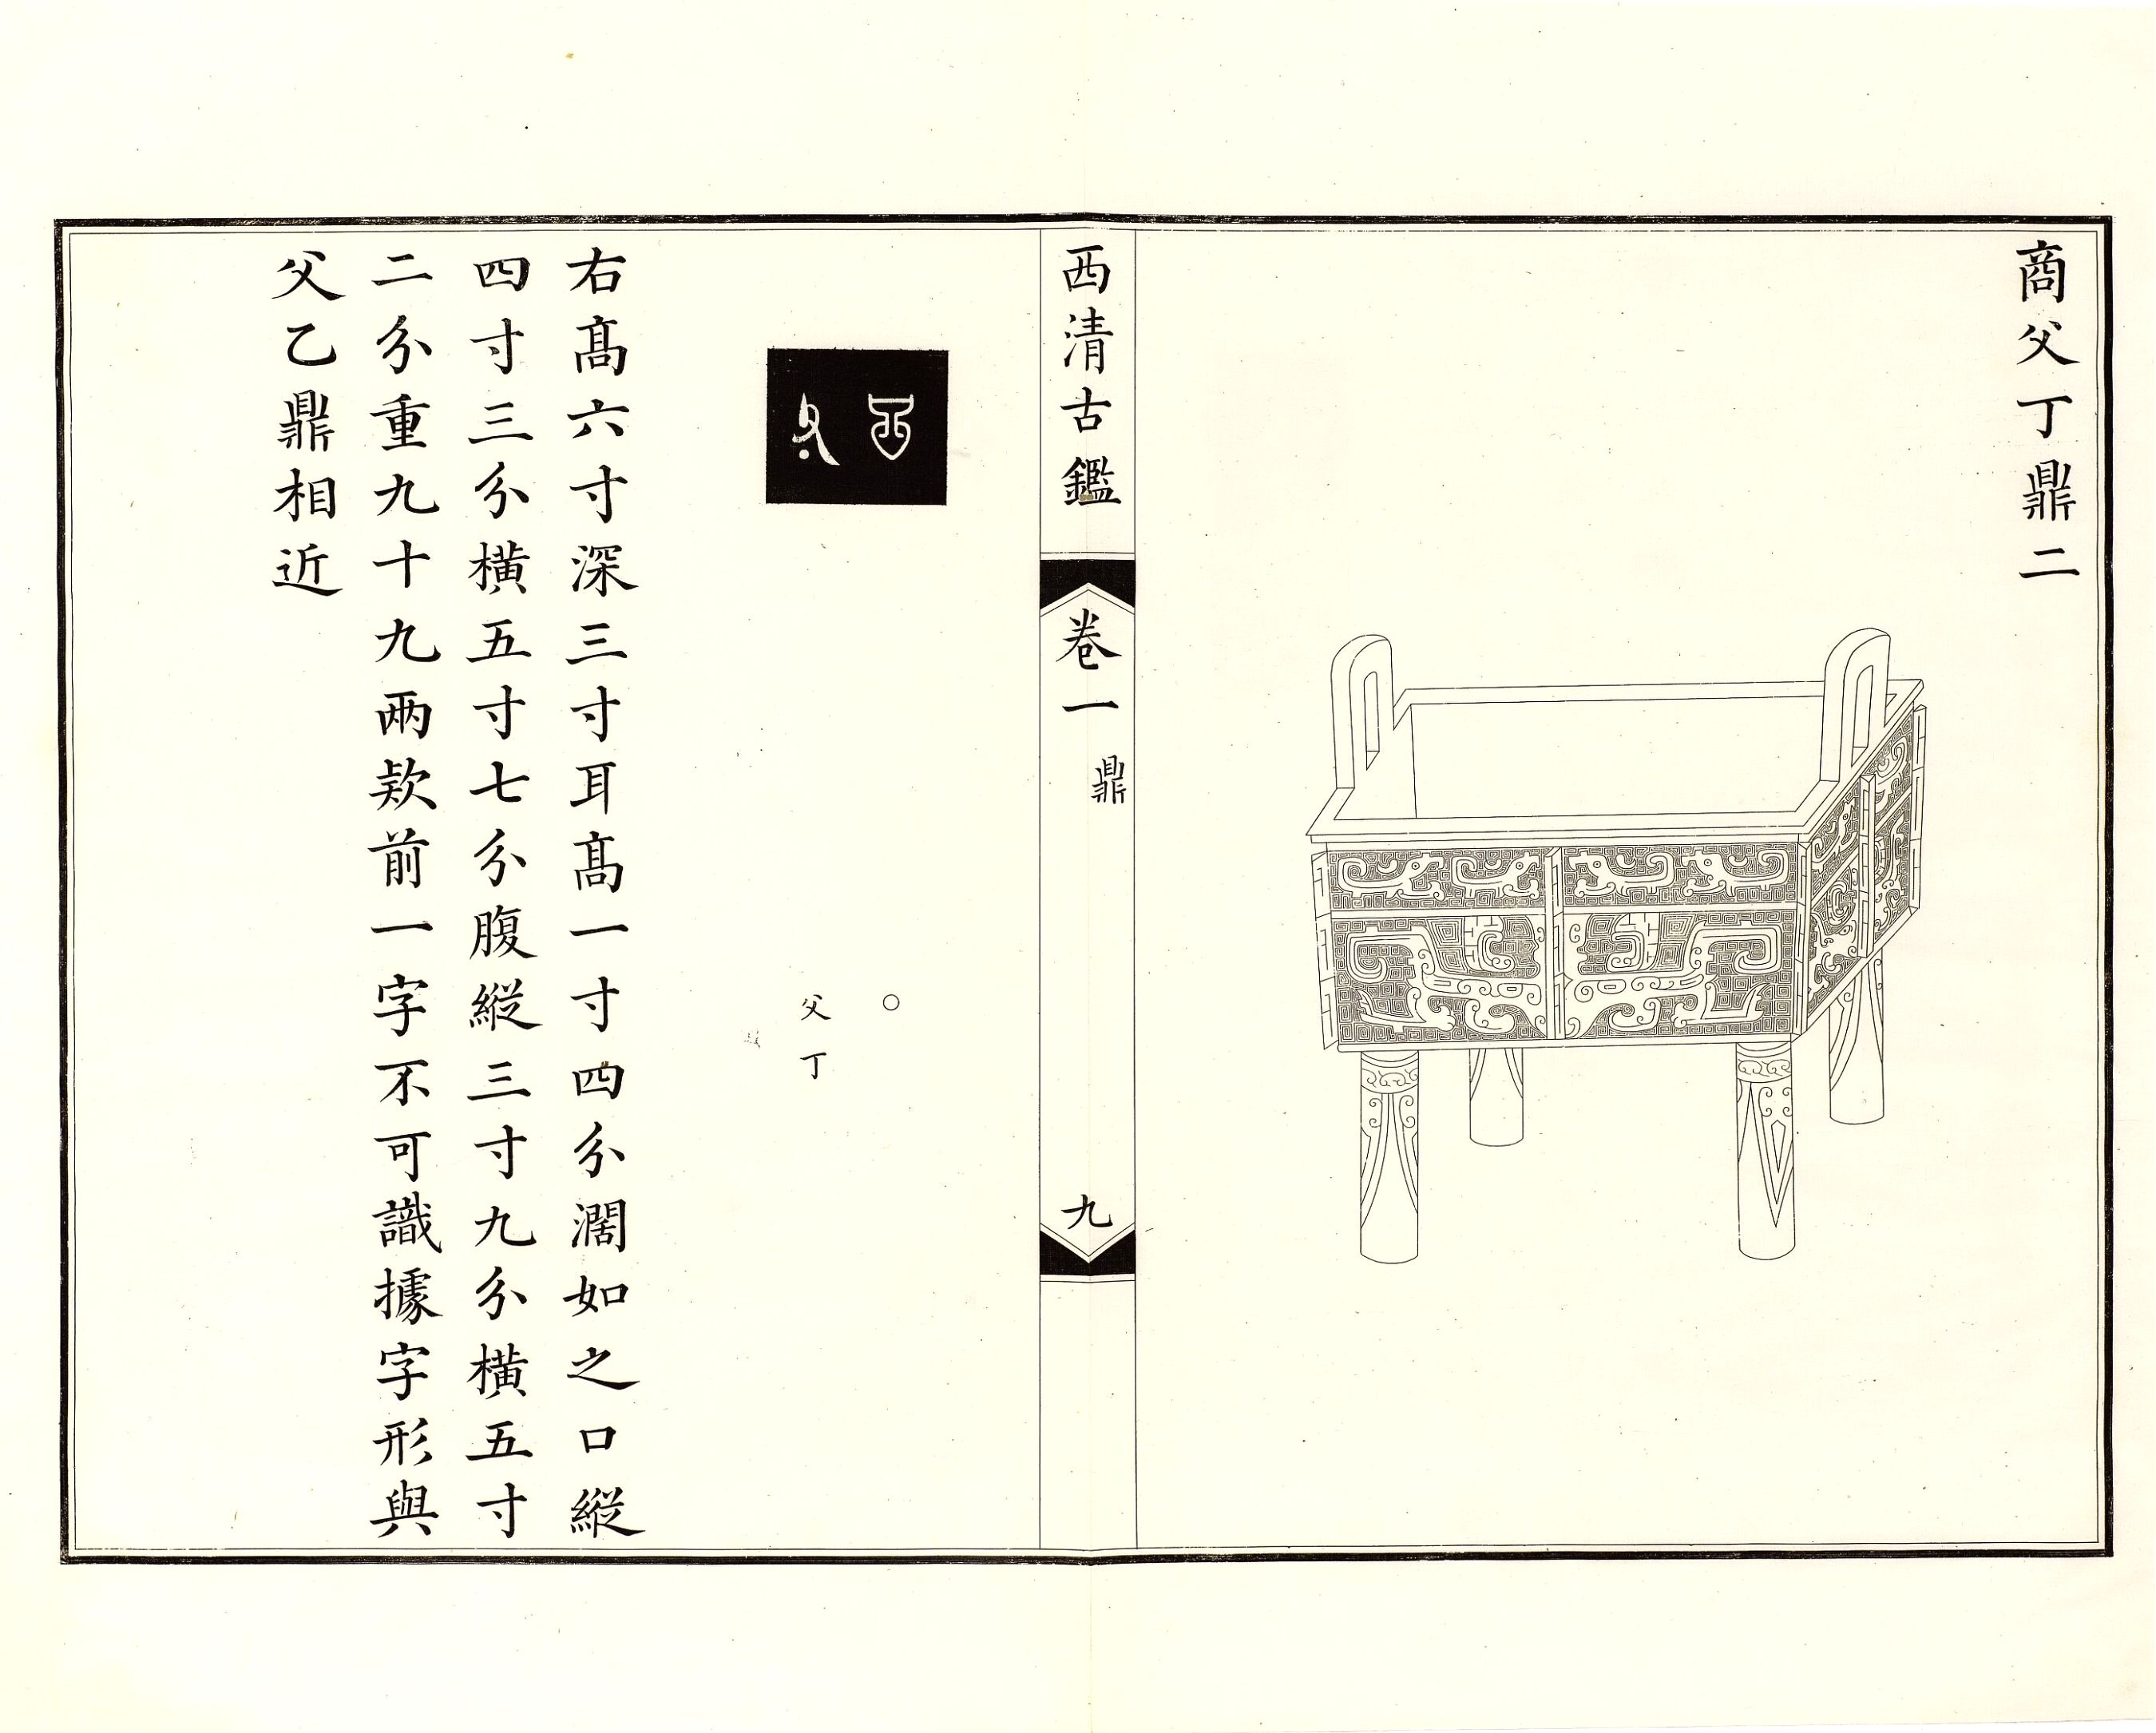 商父丁鼎二
西清古鑑
卷一
鼎
九
〇
父丁
右髙六寸深三寸耳髙一寸四分濶如之口縱
四寸三分橫五寸七分腹縱三寸九分橫五寸
二分重九十九兩欵前一字不可識據字形與
父乙鼎相近